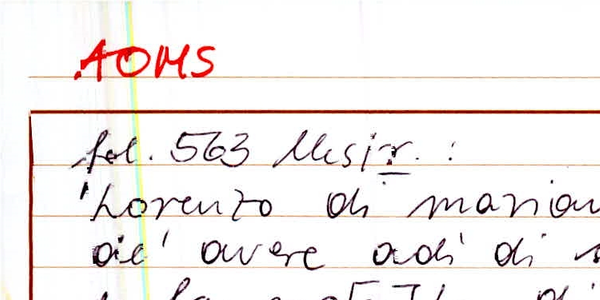 AOMS
fol. 563 Ursir. :
'Lorenzo di marian
de' avere adì di